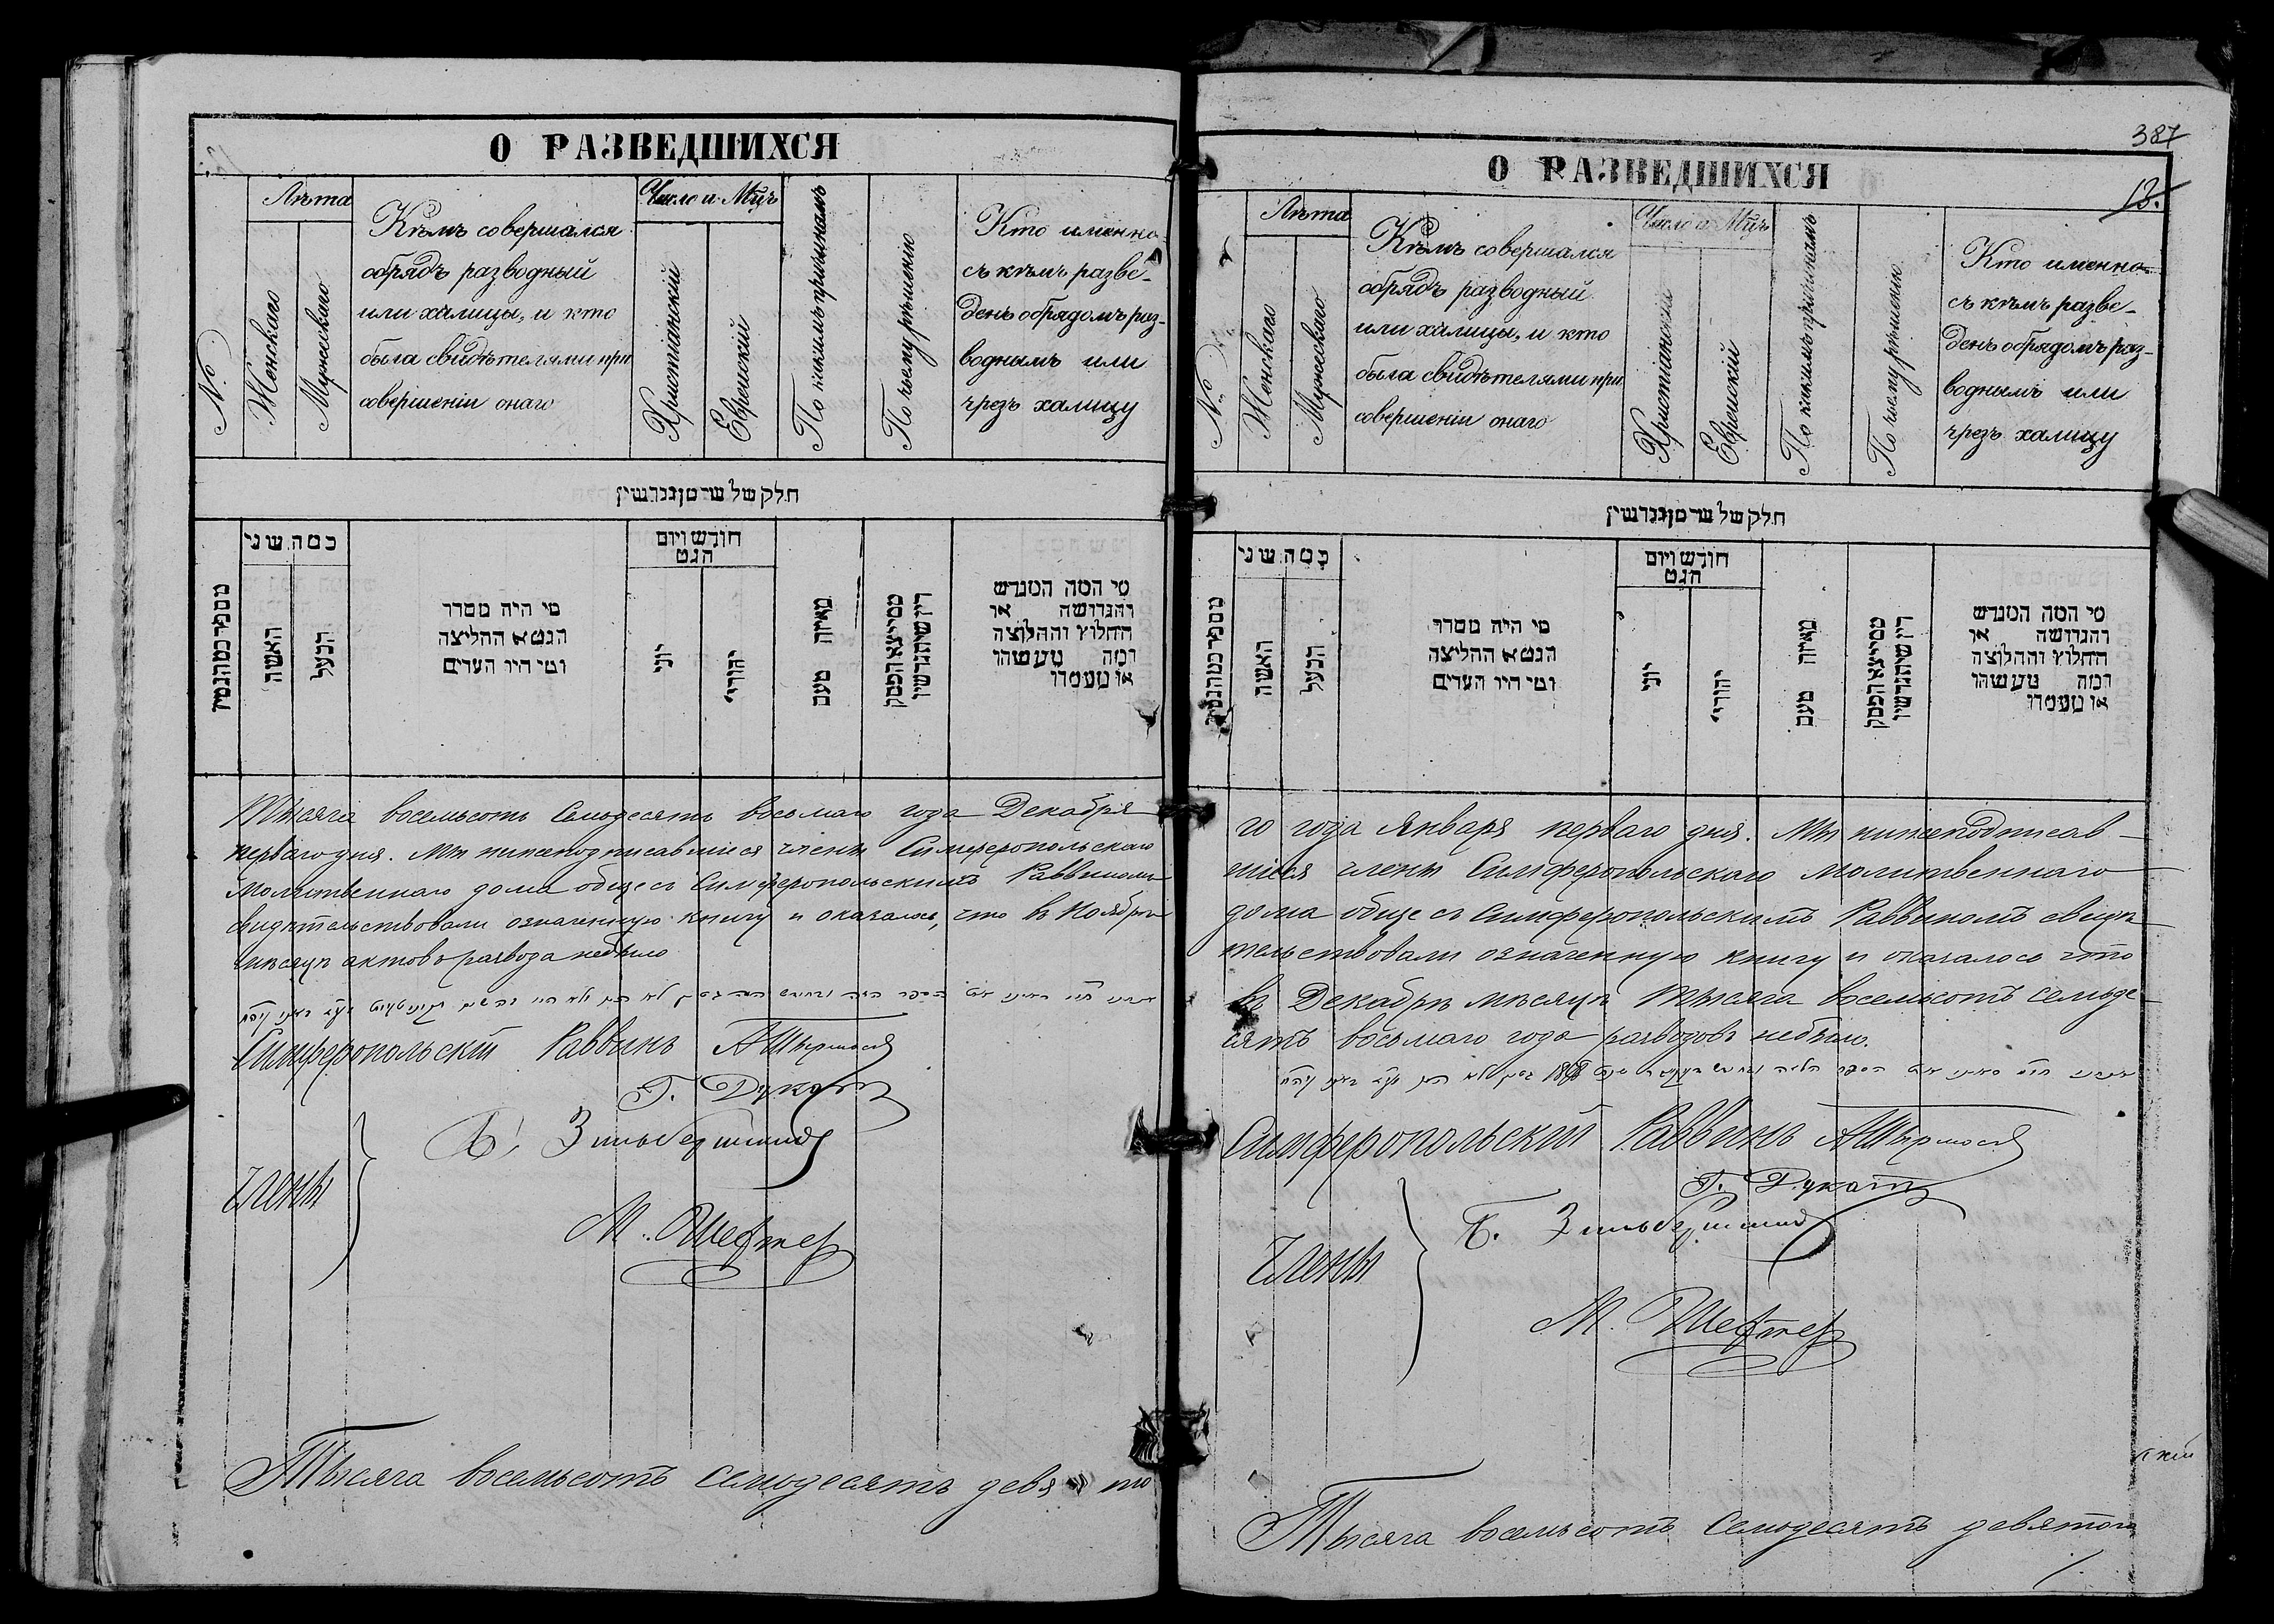 О РАЗВЕДШИХСЯ
№.
Лѣта
Женскаго
Мужескаго
Кѣмъ совершался
обрядъ разводный
или халицы, и кто
была свидѣтелями при
совершеніи онаго
Число и Мцъ
Христіанскій
Еврейскій
По какимъ причинамъ
По чьему рѣшенію
Кто именно
съ кѣмъ разве-
денъ обрядомъ раз-
воднымъ или
чрезъ халицу
חלק של
כמה שני
האשה
הבעל
מי היה מסדר
הגט א ההליצה
ומי היו העדים
חודש ויום
הגט
יוני
יהודי
מאיזה טעם
מי המה המגרש
והגרושה או
החלוץ והחלוצה
ומה מעשהו
או מעמדו
Тысяча восемьсотъ семьдесятъ восьмаго года Декабря
перваго дня. Мы нижеподписавшіеся члены Симферопольскаго
Молитвеннаго дома обще съ Симферопольскимъ Раввиномъ
свидѣтельствовали означенную книгу и оказалось, что въ Ноябрѣ
мѣсяцѣ актовъ развода небыло
Симферопольскій Раввинъ
Г. Дукатъ
Члены
Б. Зильберштейнъ
М. Шефтер
Тысяча восемьсотъ семьдесятъ девя то
387
13.
О РАЗВЕДШИХСЯ
№.
Лѣта
Женскаго
Мужескаго
Кѣмъ совершался
обрядъ разводный
или халицы, и кто
была свидѣтелями при
совершеніи онаго
Число и Мцъ
Христіанскій
Еврейскій
По какимъ причинамъ
По чьему рѣшенію
Кто именно
съ кѣмъ разве-
денъ обрядомъ раз-
воднымъ или
чрезъ халицу
חלק של
כמה שני
האשה
הבעל
מי היה מסדר
הגט א ההליצה
ומי היו העדים
חודש ויום
הגט
יוני
יהודי
מאיזה טעם
מי המה המגרש
והגרושה או
החלוץ והחלוצה
ומה מעשהו
או מעמדו
го года Января перваго дня. Мы нижеподписав-
шіеся члены Симферопольскаго Молитвеннаго
дома обще съ Симферопольскимъ Раввиномъ свидѣ-
тельствовали означенную книгу и оказалось что
въ Декабрѣ мѣсяцѣ тысяча восемьсотъ семьде-
сятъ восьмаго года разводовъ небыло.
1878
Симферопольскій Раввинъ
Г. Дукатъ
Члены
Б. Зильберштейнъ
М. Шефтер
Тысяча восемьсотъ семьдесятъ девятого